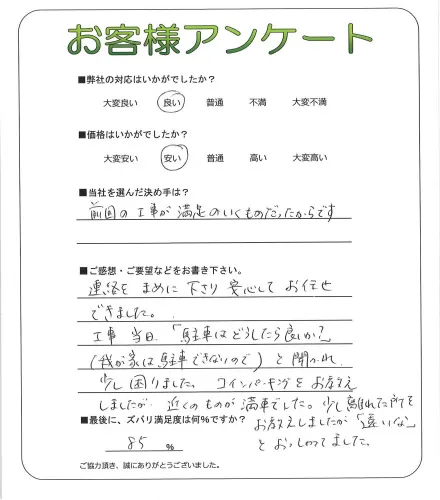 お客様アンケート
■弊社の対応はいかがでしたか？
大変良い 良い 普通 不満 大変不満
■価格はいかがでしたか？
大変安い 安い 普通 高い 大変高い
■当社を選んだ決め手は？
前回の工事が満足のいくものだったからです
■ご感想・ご要望などをお書き下さい。
連絡をまめに下さり安心してお任せ
できました。
工事当日、「駐車はどうしたら良いか？」
(我が家は駐車できないので)と聞かれ、
少し困りました。コインパーキングをお教え
しましたが、近くのものが満車でした。少し離れた所を
お教えしましたが「遠いな」
とおっしゃってました。
■最後に、ズバリ満足度は何%ですか？
85 %
ご協力頂き、誠にありがとうございました。